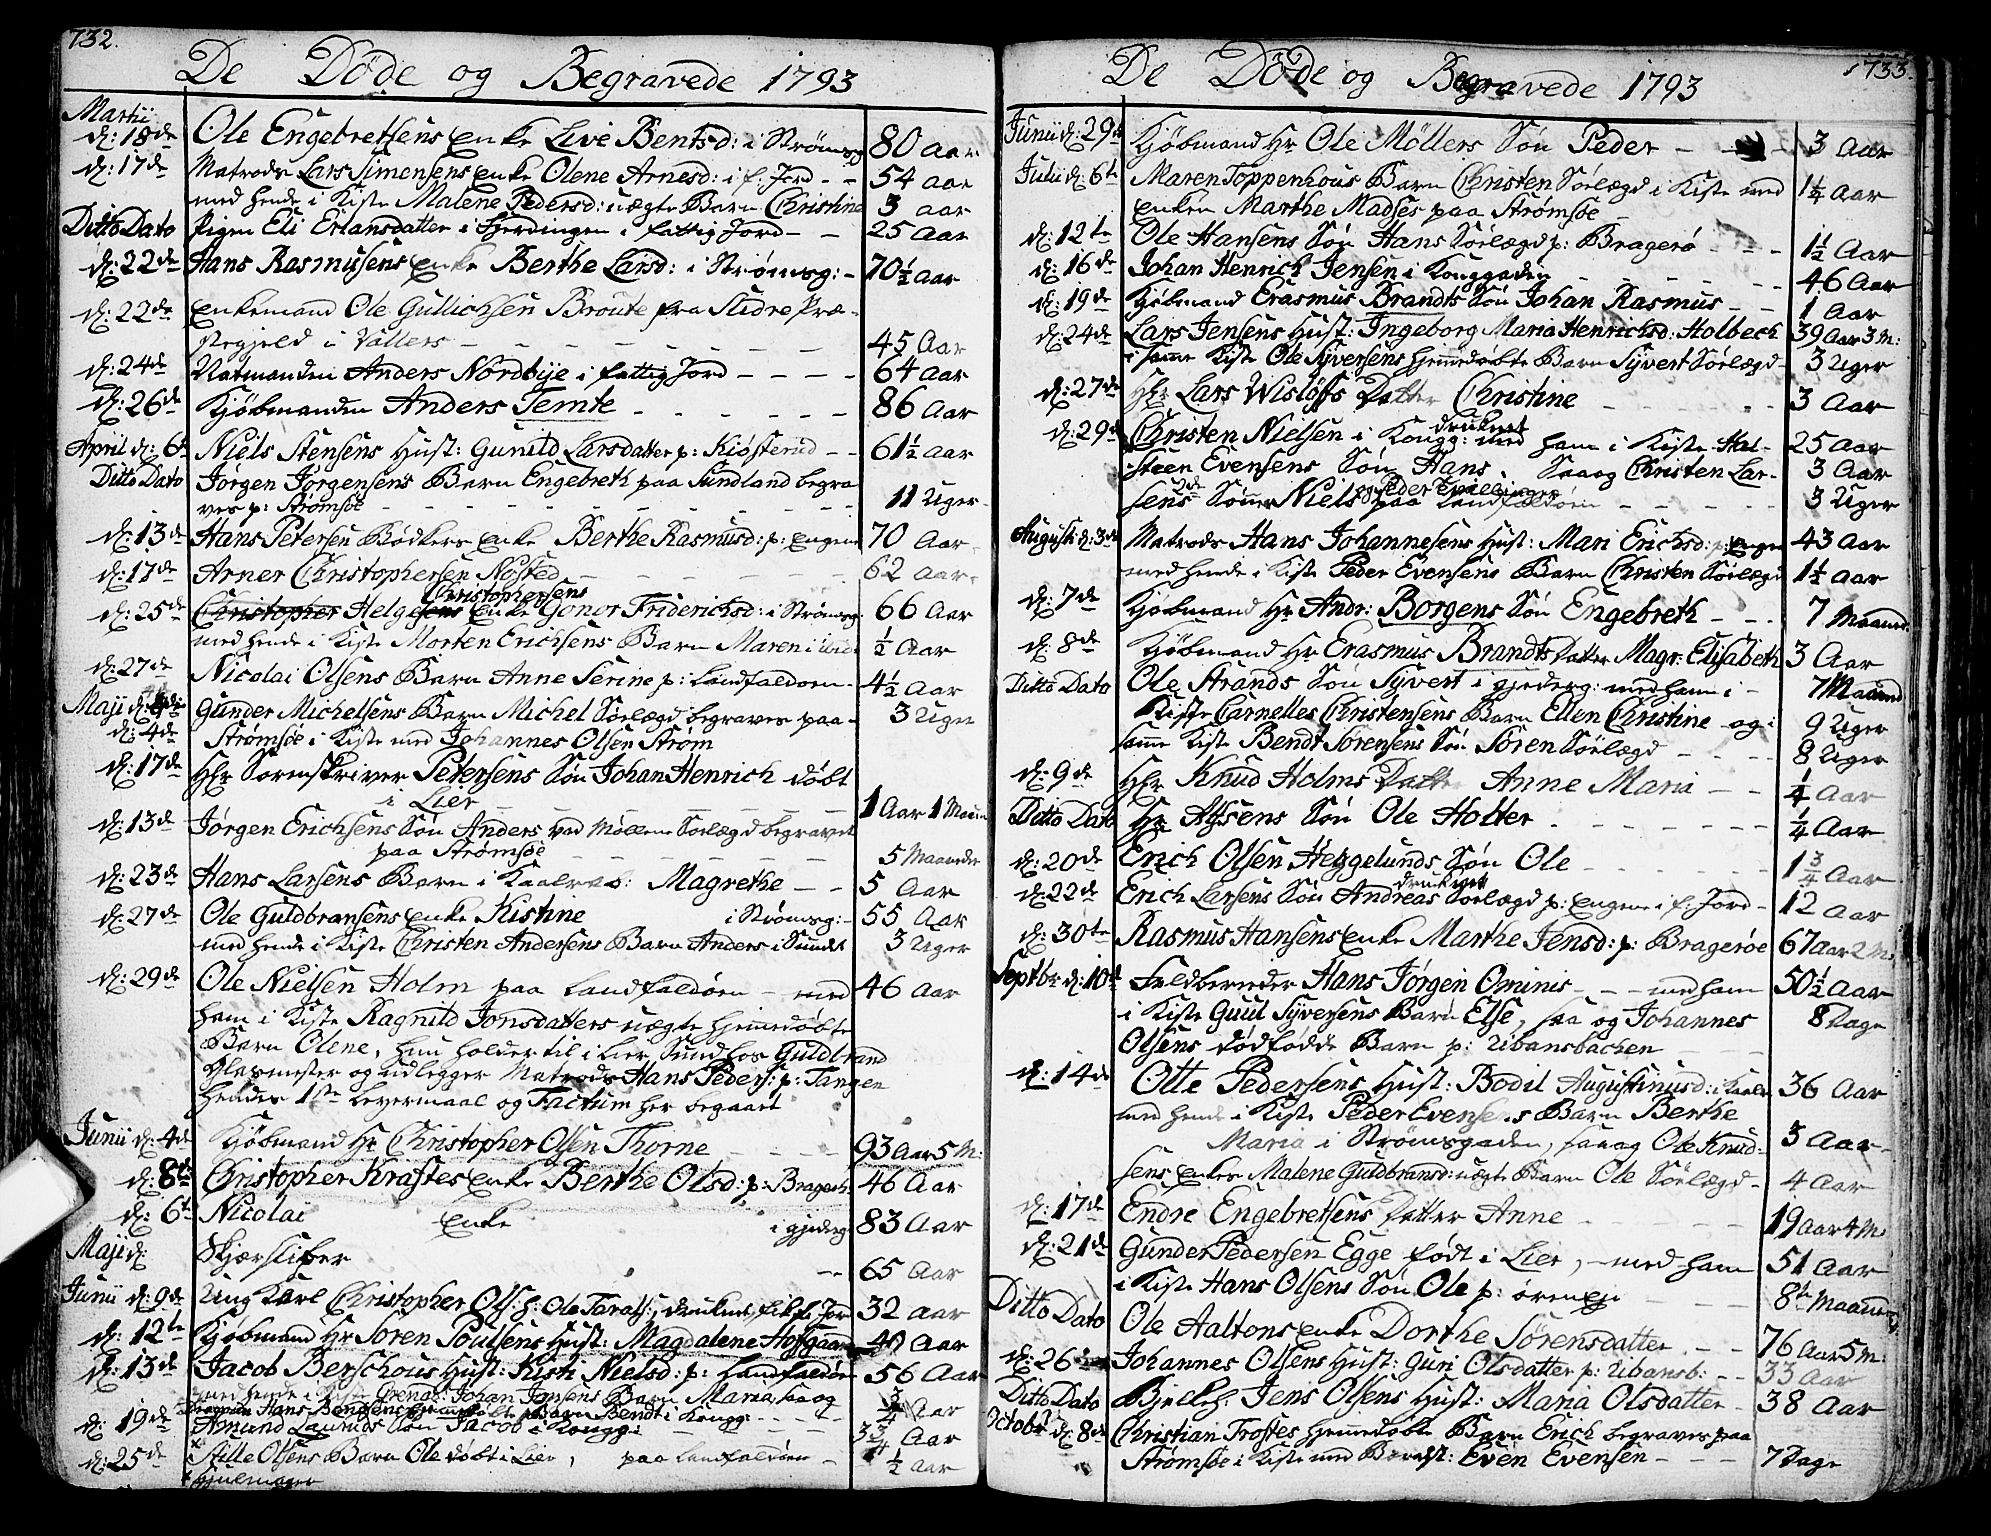 732.
De Døde og Begravede 1793
Martii
d: 18de Ole Engebretsens enke Live Bentsd: i Strømsg 80 Aar
d: 17de Matrods Lars Simensens enke Olene Arnesd: i f: Jord - - 54 Aar
med hende i Kiste Malene Pedersd: uægte Barn Christine 3 Aar
Ditto Dato Pigen Eli Erlansdatter i Fjerdingen i fattig Jord - - 25 Aar
d: 22de Hans Rasmusens enke Berthe Larsd: i Strømsg: - 70½ Aar
d: 22de enkemand Ole Gullichsen Broute fra Slidre Præ-
stegjeld i Vallers - - - 45 Aar
d: 24de Natmanden Anders Nordbye i fattig Jord - - - - 64 Aar
d: 26de Kjøbmanden Anders Temte - - - - 86 Aar
April d: 6te Niels Stensens Hust: Gunild Larsdatter p: Kiøsterud - - 61½ Aar
Ditto Dato Jørgen Jørgensens Barn Engebreth paa Sundland begra
ves p: Strømsøe - - - 11 Uger
d: 13de Hans Petersen Bødkers enke Berthe Rasmusd: p: Engene 70 Aar
d: 17de Arner Christophersen Nøsted - - - 62 Aar
Christophersens
d: 25de Christopher Helgesens enke Gonor Friderichsd: i Strømsg 66 Aar
med hende i Kiste Morten Erichsens Barn Maren i ½ Aar
d: 27de Nicolai Olsens Barn Anne Serine p: Landfaldøen - 4½ Aar
Maji d: Gunder Michelsens Barn Michel Sørlægd begraves paa - 3 Uger
d: 4de Strømsøe i Kiste med Johannes Olsen Strøm
d: 17de Hr Sorenskriver Petersens Søn Johan Henrich døbt
i Lier - - - 1 Aar 1 Maan
d: 13de Jørgen Erichsens Søn Anders ved Møllene Sørlægd begravet
paa Strømsøe - - - 5 Maaneder
d: 23de Hans Larsens Barn i Kaalrab: Magrethe - - 5 Aar
d: 27de Ole Guldbransens enke Kistine i Strømsg: - 55 Aar
med hende i Kiste Christen Andersens Barn Anders i Sundet 3 Uger
d: 29de Ole Nielsen Holm paa Landfaldøen - med 46 Aar
ham i Kiste Ragnild Jonsdatters uægte hjemedøbte
Barn Olene, hun holder til i Lier Sund hos Guldbrand
Glasmester og udlegger Matrods Hans Peders: p: Tangen
hendes 1ste Leyermaal og Factum her begaaet
Junii d: 4de Kjøbmand Hr Christopher Olsen Thorne - - - 93 Aar 5 M:
d: 8de Christopher Kraftes enke Berthe Olsd: p: Bragerh 46 Aar
d: 6te Nicolai enke i gjederg: 83 Aar
Maji d: Skjærsliber - - 65 Aar
Junii d: 9de Ung Karl Christopher Ols: S: Ole Taralss: druknet f: Jor 32 Aar
d: 12te Kjøbmand Hr Søren Poulsens Hust: Magdalene Hofgaard 40 Aar
d: 13de Jacob Berschous Hust: Kisti Nielsd: p: Landfaldøn 56 Aar
med hende i Kiste Grenad: Johan Jansens Barn Maria saa og ¾ Aar
Dragoun Hans Bendsens hjemedøbte Barn Bendt i Kongg: - - -
d: 19de Amund Laurids Søn Jacob i Kongg: 3¾ Aar
d: 25de Stille Olsens Barn Ole døbt i Lier, paa Landfaldøen - 1½ Aar
* Hjulmager
1733.
De Døde og Begravede 1793
Junii d: 29de Kjøbmand Hr Ole Møllers Søn Peder - - - 3 Aar
Julii d: 6te Maren Toppenhous Barn Christen Sørlægd i Kiste med 1¼ Aar
enken Marthe Madses paa Strømsøe -
d: 12te Ole Hansens Søn Hans Sørlægd p: Bragerø - - - 1½ Aar
d: 16de Johan Henrich Jensen i Konggaden - - - 46 Aar
d: 19de Kjøbmand Erasmus Brandts Søn Johan Rasmus - - 1 Aar
d: 24de Lars Jensens Hust: Ingeborg Maria Henrichsd: Holbech 39 Aar 3 M:
i samme Kiste Ole Syversens hjemedøbte Barn Syvert Sørlægd 3 Uger
d: 27de Hr Lars Wisløffs Datter Christine - - - 3 Aar
druknet
d: 29de Christen Nielsen i Kongg: med ham i Kiste Hal- 25 Aar
steen Evensens Søn Hans. Saa og Christen Lar- 3 Aar
og Peder Tvillinger
sens Sønner Niels paa Landfaldøen - - - 3 Uger
Augusti d: 3de Matrods Hans Johannesens Hust: Mari Erichsd: p: Engene 43 Aar
med hende i Kiste Peder Evensens Barn Christen Sørlægd 1½ Aar
d: 7de Kjøbmand Hr Andr: Borgens Søn Engebreth - - - 7 Maaned
d: 8de Kjøbmand Hr Erasmus Brandts Datter Magr: Elisabeth 3 Aar
Ditto Dato Ole Strands Søn Syvert i gjederg: med ham i - 7 Maaned
Kiste Carnelles Christensens Barn Ellen Christine - og i 9 Uger
samme Kiste Bendt Sørensens Søn Søren Sørlægd - - - 8 Uger
d: 9de Hr Knud Holms Datter Anne Maria - - ¼ Aar
Ditto Dato Hr Alfsens Søn Ole Holter - - - ¼ Aar
d: 20de Erich Olsen Heggelunds Søn Ole - - - 1¾ Aar
druknet
d: 22de Erich Larsens Søn Andreas Sørlægd p: Engene i f: Jord - 12 Aar
d: 30te Rasmus Hansens enke Marthe Jensd: p: Bragerøe 67 Aar 2 M:
Septbr d: 10de Feldbereder Hans Jørgen Ominis - - - med ham 50½ Aar
i Kiste Guul Syversens Barn Else, saa og Johannes 8 Dage
Olsens dødfødde Barn p: Ubansbachen
d: 14de Otte Pedersens Hust: Bodil Augustinusd: i Kaalr 36 Aar
med hende i Kiste Peder Evensens Barn Berthe
Maria i Strømsgaden, saa og Ole Knud- 3 Aar
sens enkes Malene Guldbransd: uægte Barn Ole Sørlægd - 4 Aar
d: 17de Endre Engebretsens Datter Anne - - - 19 Aar 4 M:
d: 21de Gunder Pedersen Egge født i Lier, - med ham 51 Aar
i Kiste Hans Olsens Søn Ole p: ørenen - - - 8te Maaned
Ditto Dato Ole Aaltons enke Dorthe Sørensdatter. - - 76 Aar 5 M:
d: 26de Johannes Olsens Hust: Guri Olsdatter p: Ubansb: - - 33 Aar
Ditto Dato Jens Olsens Hust: Maria Olsdatter - - 38 Aar
Octobr d: 8de Christian Trostes hjemedøbte Barn Erich begraves paa
Strømsøe i Kiste med Even Evensen - - - 7 Dage